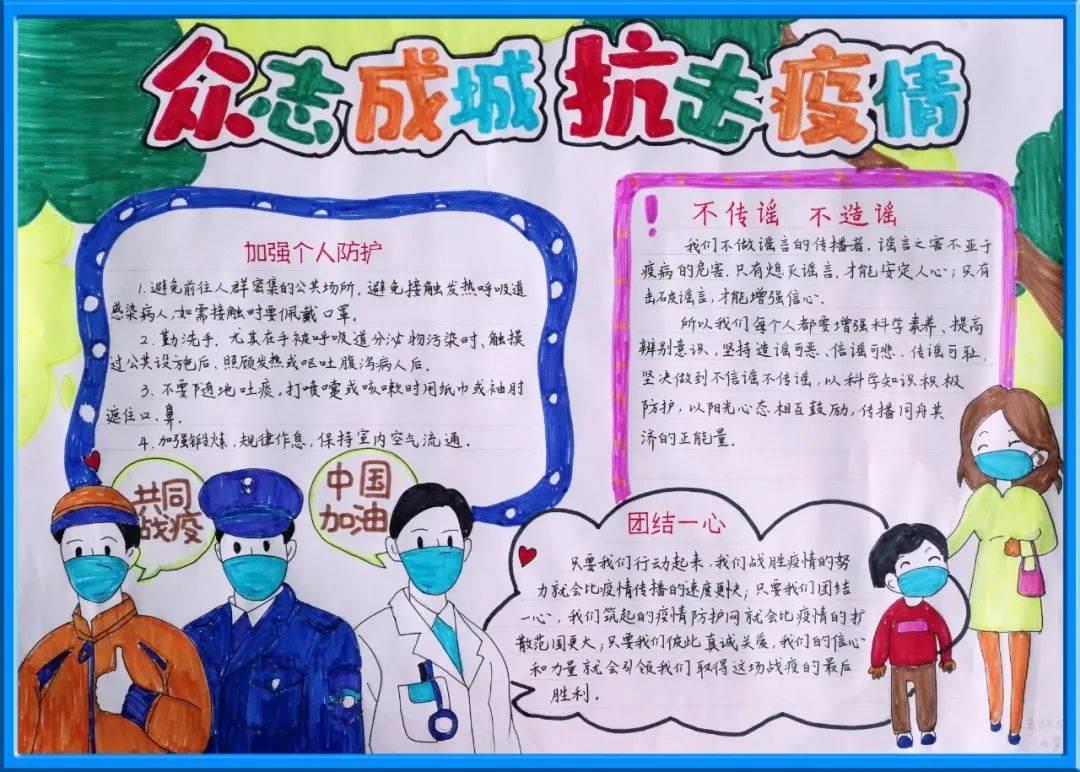 众志成城 抗击疫情
加强个人防护
1.避免前往人群密集的公共场所。避免接触发热呼吸道
感染病人,如需接触时要佩戴口罩。
2.勤洗手。尤其在手被呼吸道分泌物污染时、触摸
过公共设施后、照顾发热或呕吐腹泻病人后。
3.不要随地吐痰,打喷嚏或咳嗽时用纸巾或袖肘
遮住口、鼻。
4.加强锻炼,规律作息,保持室内空气流通。
!
不传谣 不造谣
我们不做谣言的传播者。谣言之害不亚于
疾病的危害。只有熄灭谣言,才能安定人心;只有
击破谣言,才能增强信心。
所以我们每个人都要增强科学素养、提高
辨别意识,坚持造谣可恶、信谣可悲、传谣可耻,
坚决做到不信谣不传谣,以科学知识积极
防护,以阳光心态相互鼓励,传播同舟共
济的正能量。
共同
战疫
中国
加油
团结一心
只要我们行动起来,我们战胜疫情的努
力就会比疫情传播的速度更快;只要我们团结
一心,我们筑起的疫情防护网就会比疫情的扩
散范围更大;只要我们彼此真诚关爱,我们的信心
和力量就会引领我们取得这场战疫的最后
胜利。